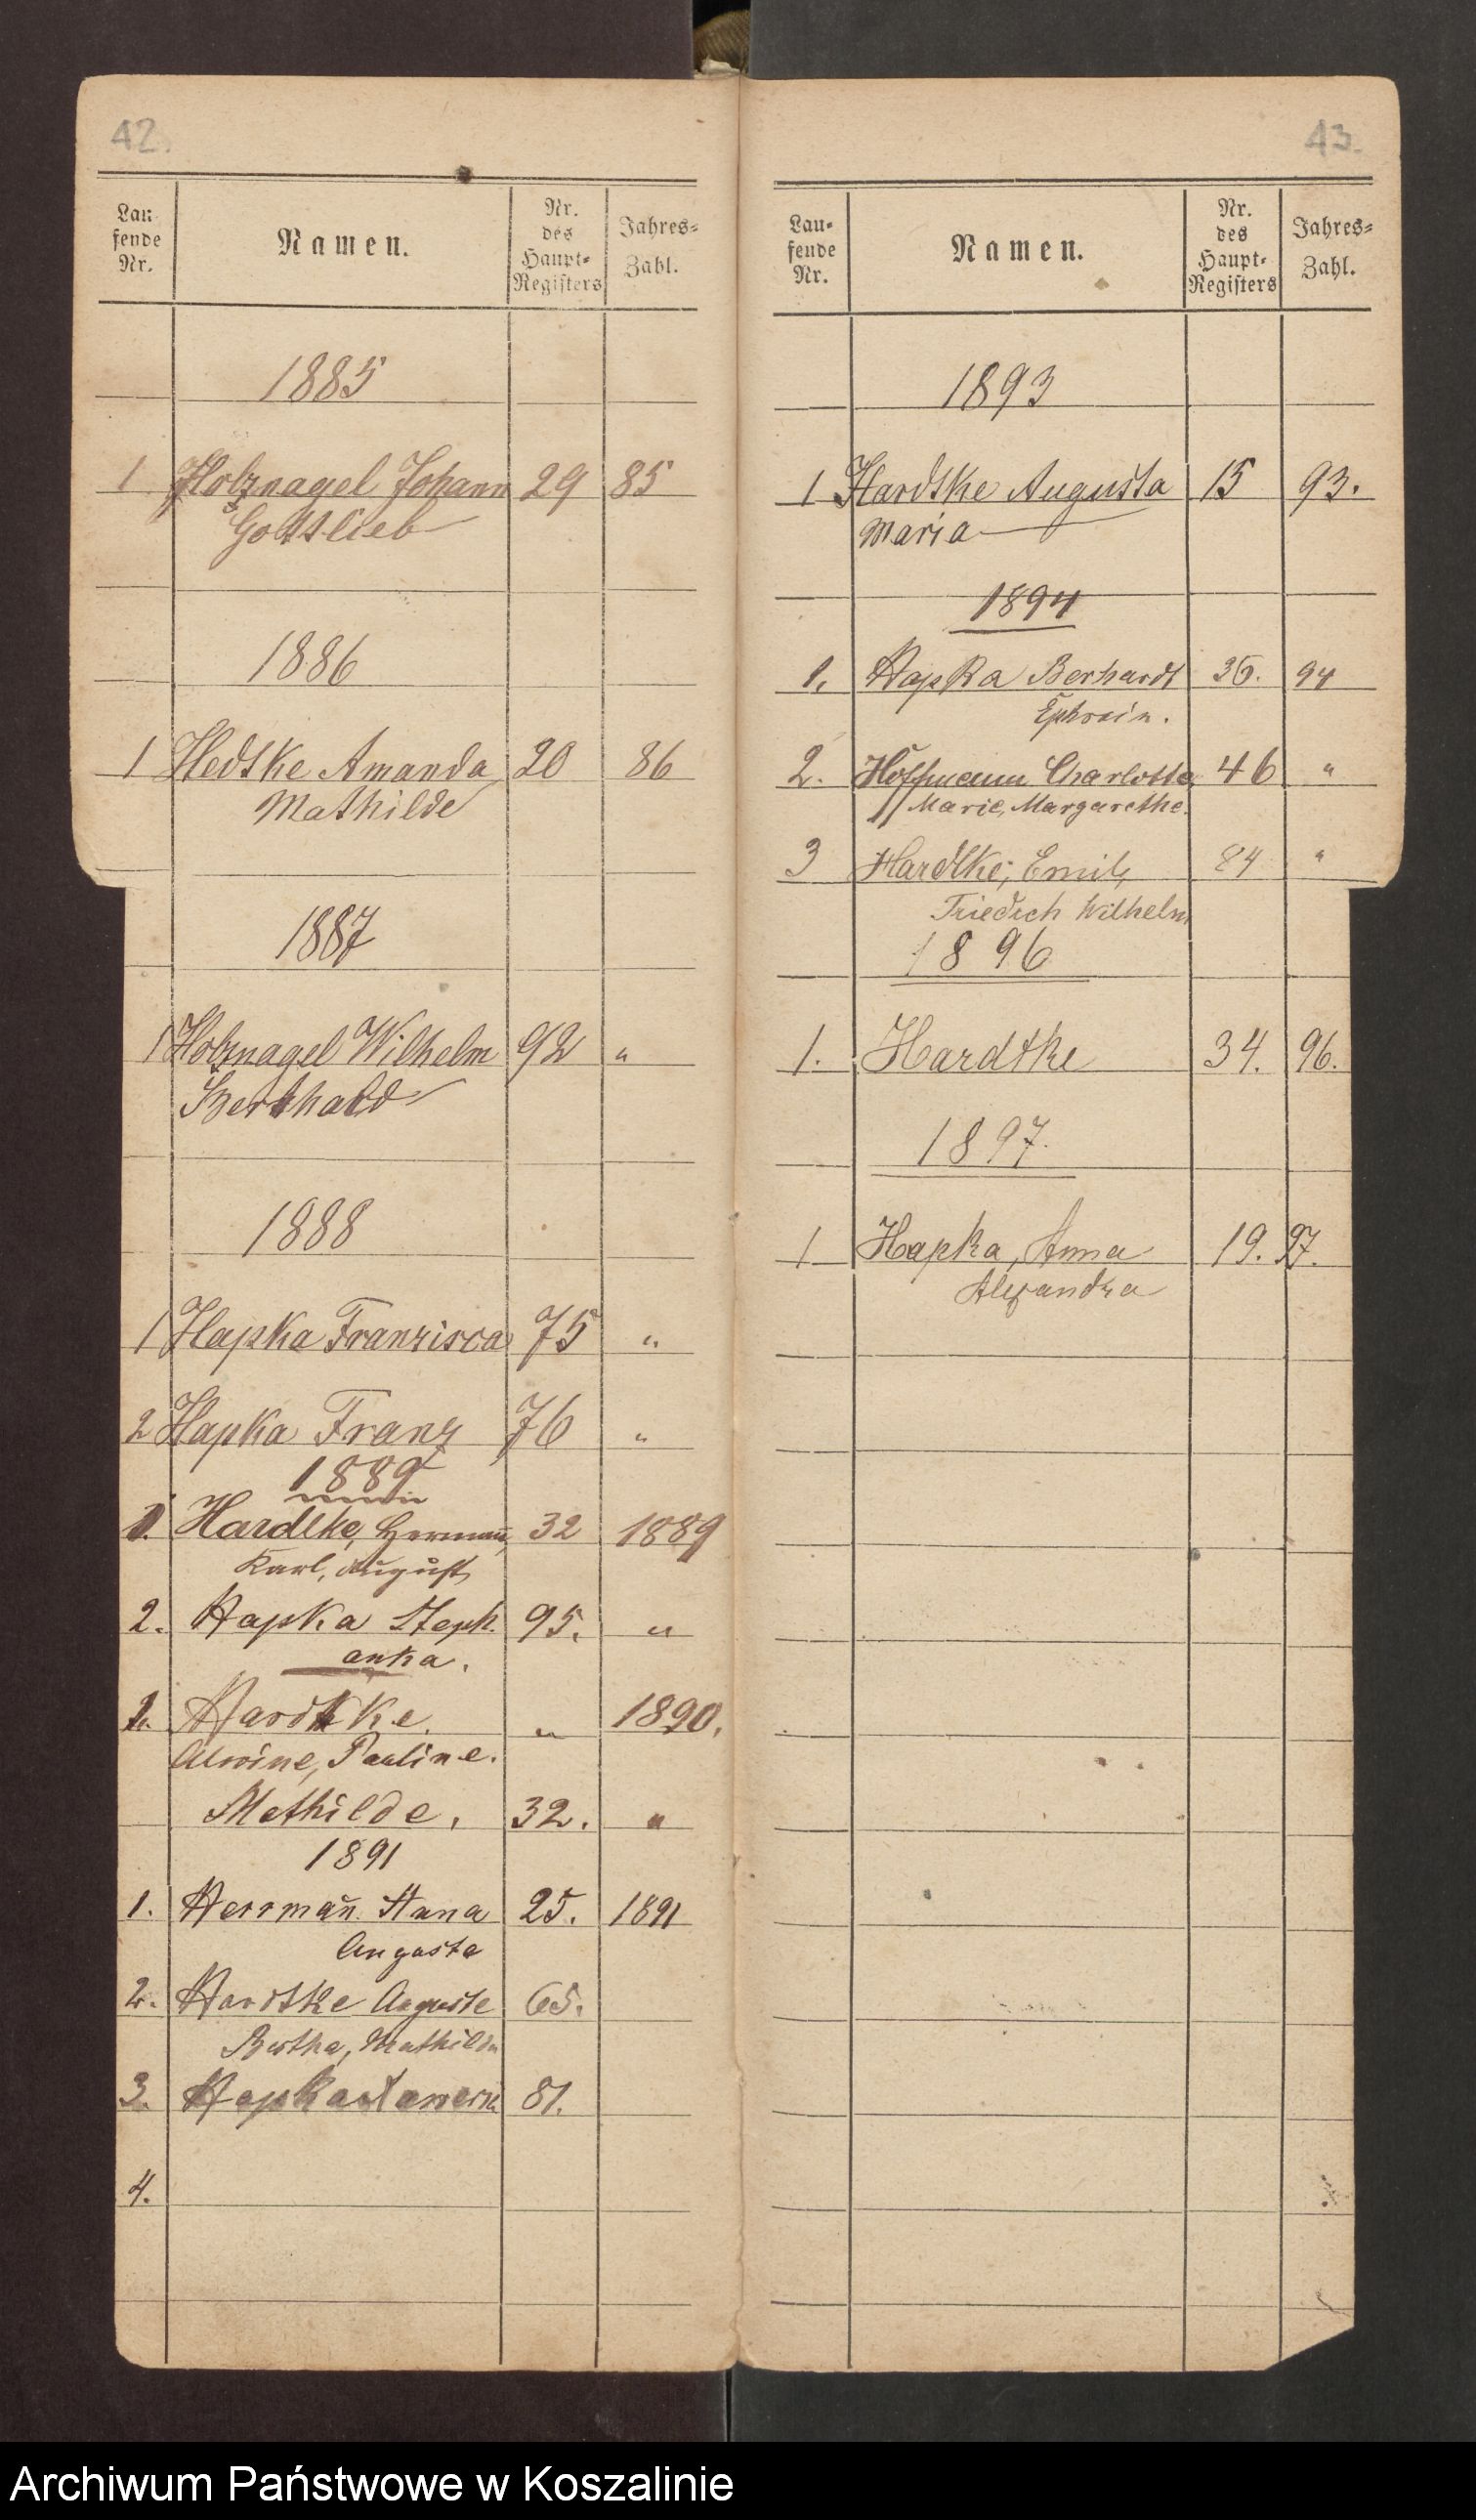 42.
Lau
fende
Nr.
Namen.
Nr.
des
Haupt-
Registers
Jahres-
Zahl.
1885
1 Holznagel Johann 29 85
Gottlieb
1886
1 Hedtke Amanda 20 86
Mathilde
1887
1 Holznagel Wilhelm 92 "
Berthold
1888
1 Hapka Franzisca 75 "
2 Hapka Franz 76 "
1889
1. Hardtke, Hermann, 32 1889
Karl, August
2. Hapka Steph. 95. "
anka.
1. Hardtke. " 1890.
Alwine, Pauline.
Mathilde. 32. "
1891
1. Herrmañ Anna 25. 1891
Auguste
2. Hardtke Auguste 65.
Bertha, Mathilde
3. Hapka 81.
4.
43.
Lau-
fende
Nr.
Namen.
Nr.
des
Haupt-
Registers
Jahres-
Zahl.
1893
1 Hardtke Augusta 15 93.
Maria
1894
1. Hapka Berhardt 36. 94
Ephrain.
2. Hoffmann Charlotte 46 "
Marie, Margarethe.
3 Hardtke, Emil, 84 "
Friedrch Wilhelm
1896
1. Hardtke 34. 96.
1897.
1 Hapka, Anna 19. 97.
Alexandra
Archiwum Państwowe w Koszalinie